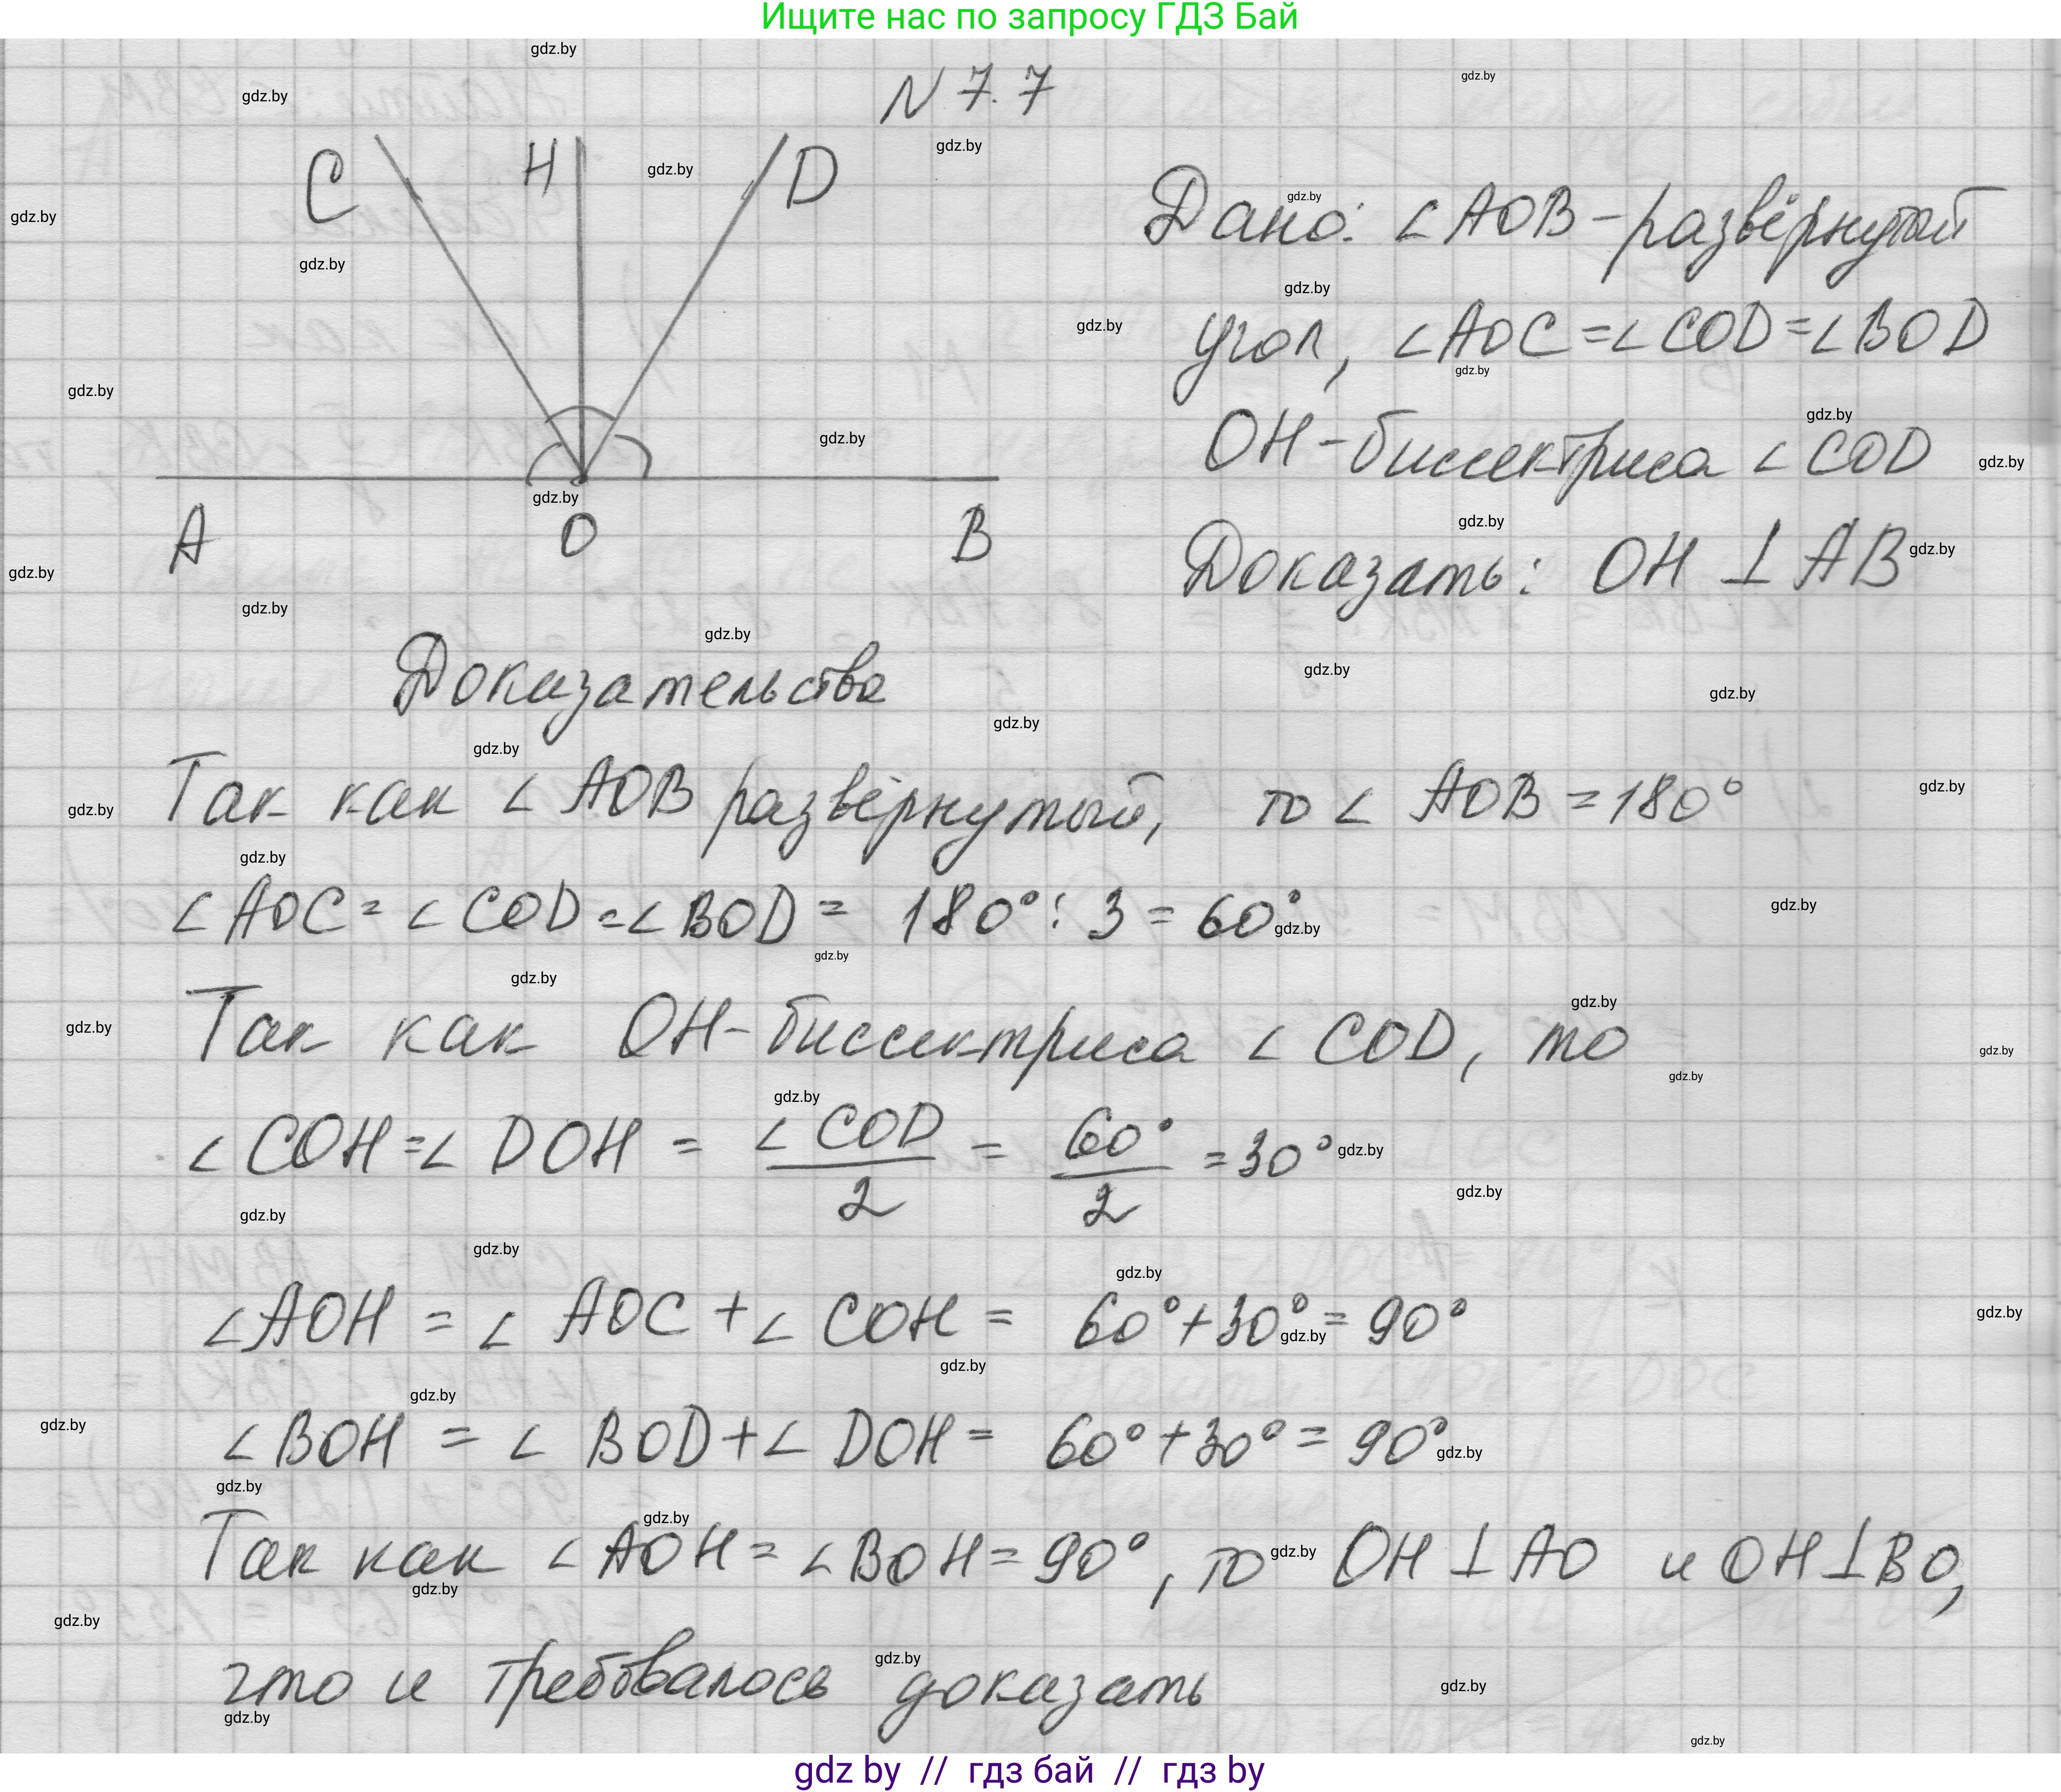 Ищите нас по запросу ГДЗ Бай
N 7.7
C H D
A O B
Дано: ∠AOB - развёрнутый
угол, ∠AOC = ∠COD = ∠BOD
OH - биссектриса ∠COD
Доказать: OH ⊥ AB
Доказательство
Так как ∠AOB развёрнутый, то ∠AOB = 180°
∠AOC = ∠COD = ∠BOD = 180° : 3 = 60°
Так как OH - биссектриса ∠COD, то
∠COH = ∠DOH = ∠COD/2 = 60°/2 = 30°
∠AOH = ∠AOC + ∠COH = 60° + 30° = 90°
∠BOH = ∠BOD + ∠DOH = 60° + 30° = 90°
Так как ∠AOH = ∠BOH = 90°, то OH ⊥ AO и OH ⊥ BO,
что и требовалось доказать
gdz.by
gdz by // гдз бай // гдз by